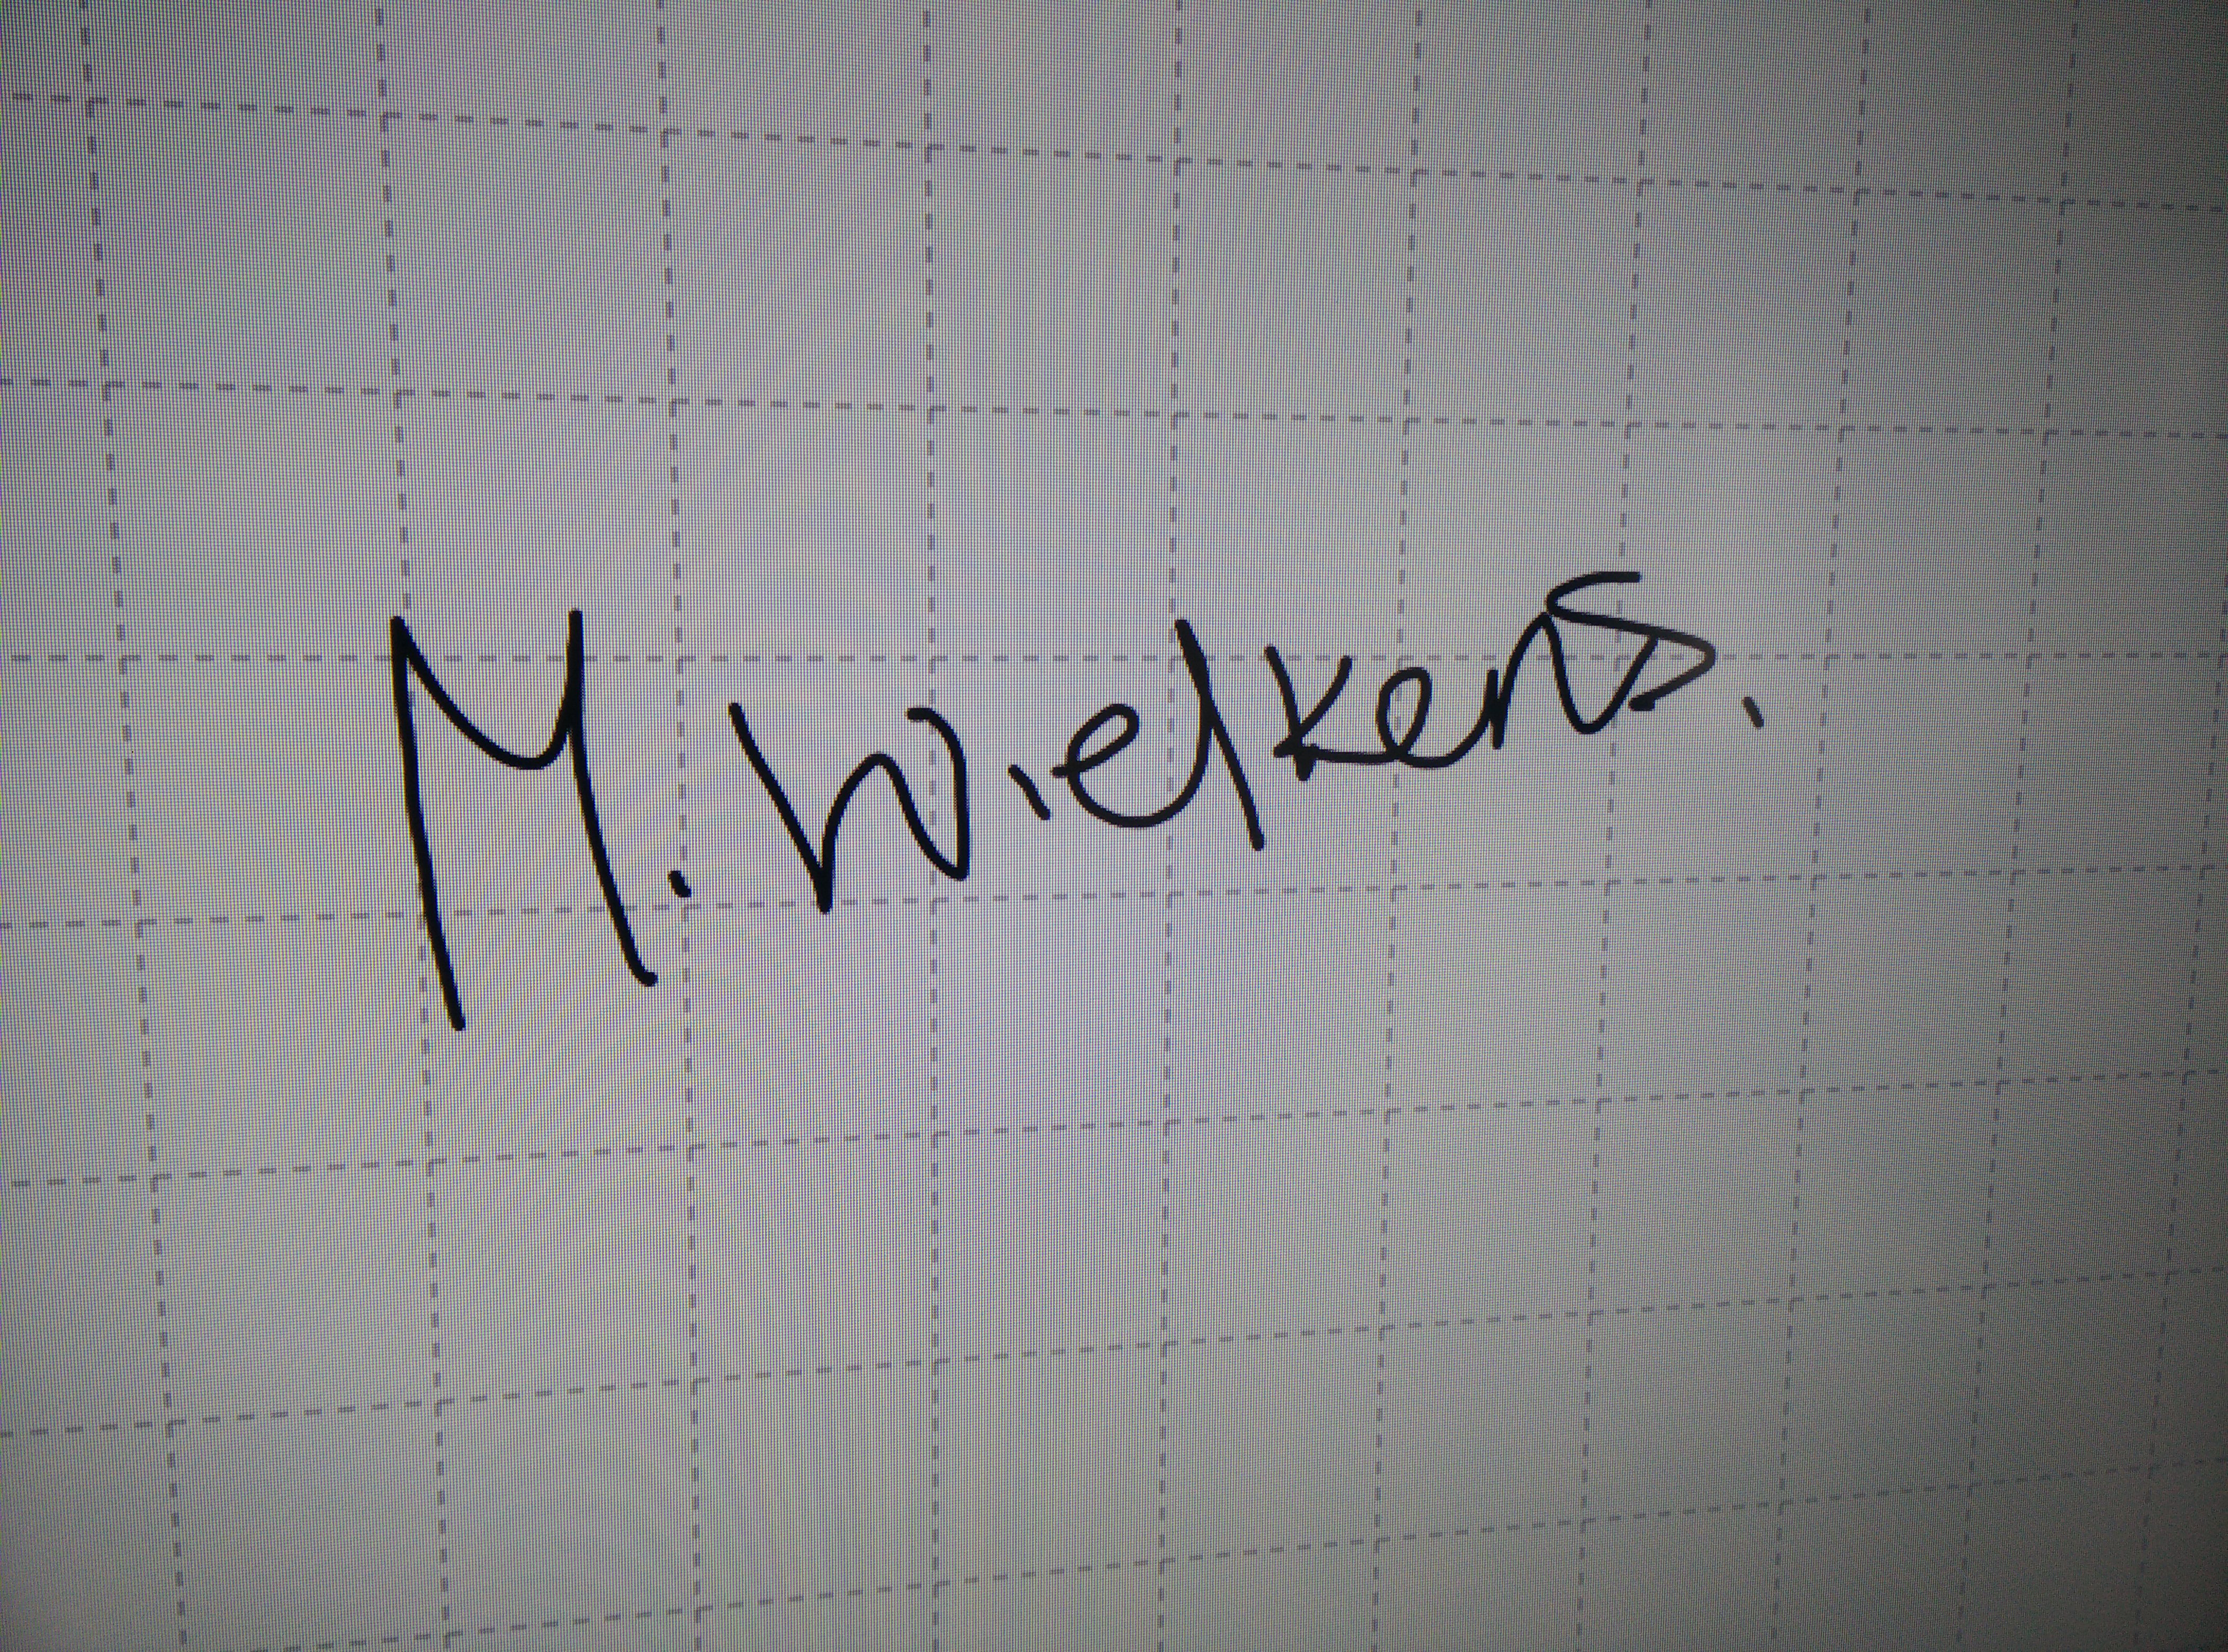 M. Wielkens.